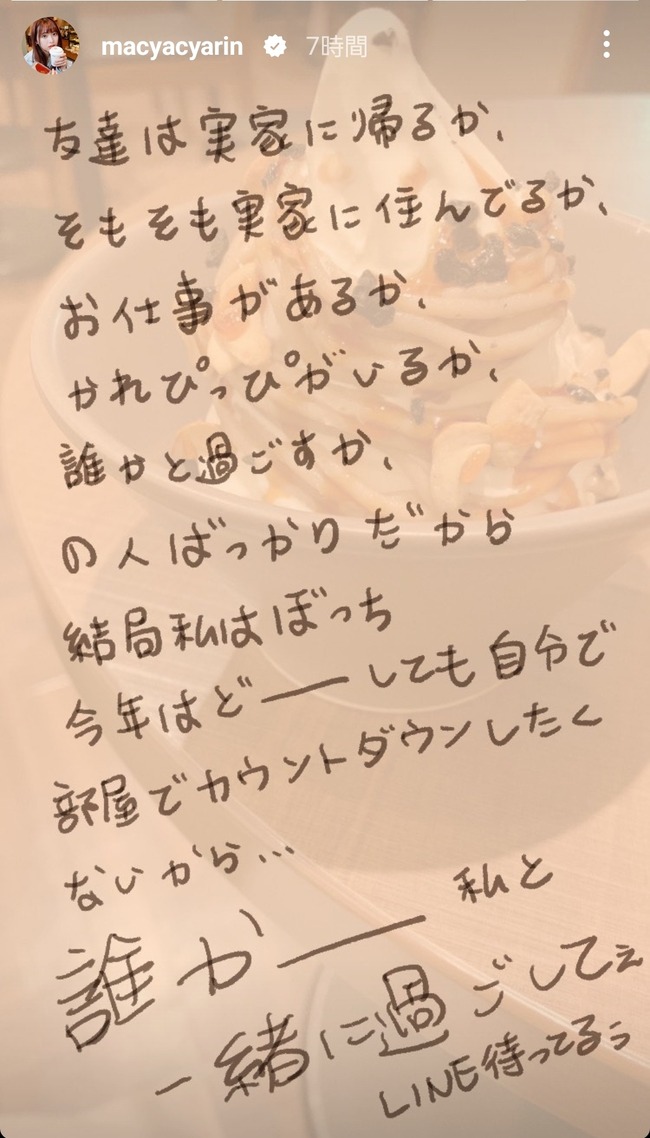 macyacyarin 7時間
友達は実家に帰るか、
そもそも実家に住んでるか、
お仕事があるか、
かれぴっぴがいるか、
誰かと過ごすか、
の人ばっかりだから
結局私はぼっち
今年はど──しても自分で
部屋でカウントダウンしたく
ないから...
私と
誰か──
一緒に過ごしてぇ
LINE待ってるぅ